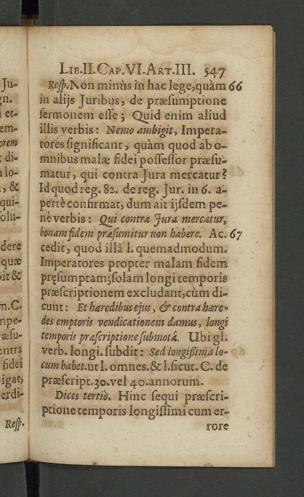 Ju-
gn.
et-
em-
orem
di-
lo-
, &
qui-
olu-
dere
quæ
oit &
m.C.
mpe-
æsu-
entra
fidei
igat,
erdi-
Resp.
LIB.II.CAP.VI.ART.III. 547
Resp. Non minùs in hac lege, quàm 66
in alijs Juribus, de præsumptione
sermonem esse; Quid enim aliud
illis verbis: Nemo ambigit, Impera-
tores significant, quàm quod ab o-
mnibus malæ fidei possessor præsu-
matur, qui contra Jura mercatur?
Id quod reg. 82. de reg. Jur. in 6. a-
pertè confirmat, dum ait ijsdem pe-
nè verbis: Qui contra Jura mercatur,
bonam fidem præsumitur non habere. Ac. 67
cedit, quod illâ l. quemadmodum.
Imperatores propter malam fidem
pręsumptam; solam longi temporis
præscriptionem excludant, cùm di-
cunt: Et hæredibus ejus, & contra hære-
des emptoris vendicationem damus, longi
temporis præscriptione submotâ. Ubi gl.
verb. longi. subdit: Sed longissima lo-
cum habet. ut l. omnes. & l. sicut. C. de
præscript. 30. vel 40. annorum.
Dices tertiò. Hinc sequi præscri-
ptione temporis longissimi cum er-
rore